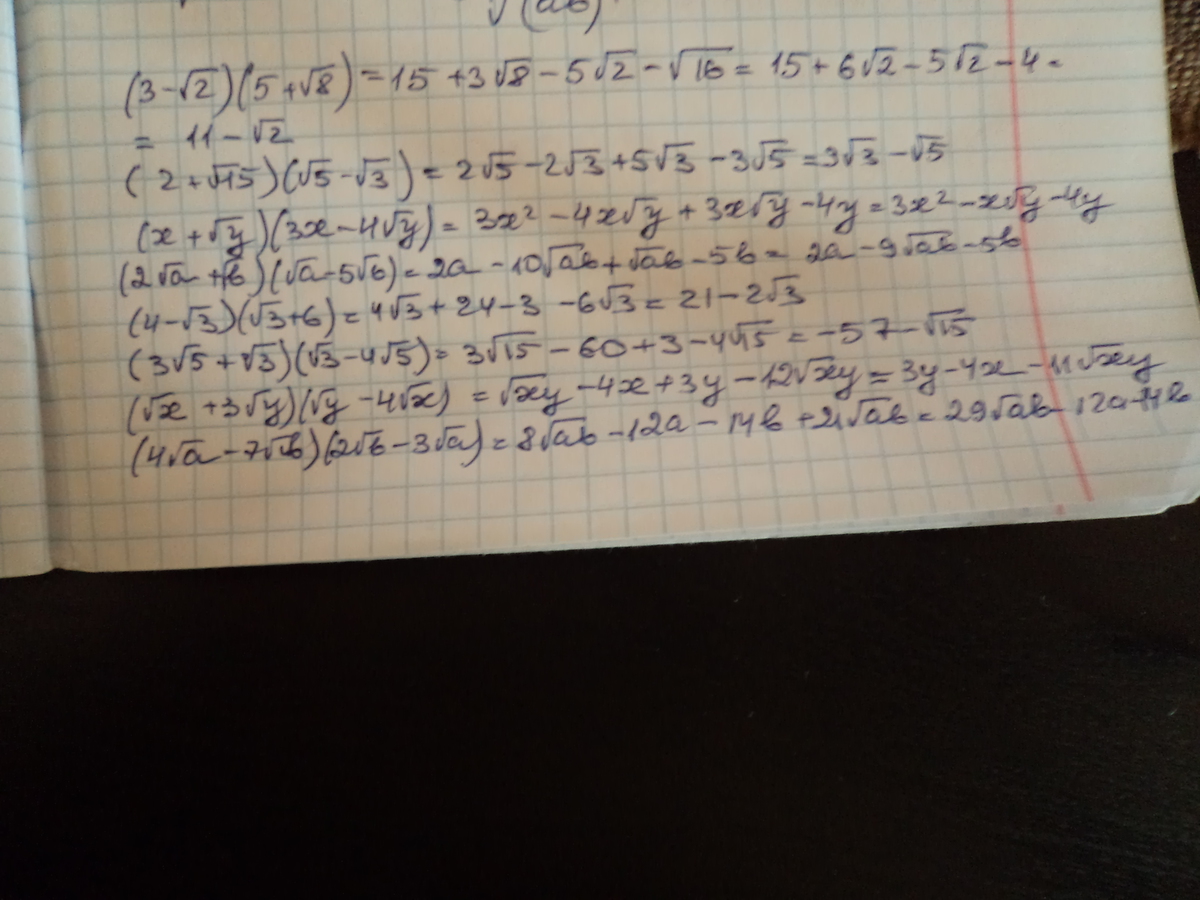 √(ab)
(3-√2)(5+√8) = 15 + 3√8 - 5√2 - √16 = 15 + 6√2 - 5√2 - 4 =
= 11 - √2
(2+√15)(√5-√3) = 2√5 - 2√3 + 5√3 - 3√5 = 3√3 - √5
(x+√y)(3x-4√y) = 3x² - 4x√y + 3x√y - 4y = 3x² - x√y - 4y
(2√a + √b)(√a - 5√b) = 2a - 10√ab + √ab - 5b = 2a - 9√ab - 5b
(4-√3)(√3+6) = 4√3 + 24 - 3 - 6√3 = 21 - 2√3
(3√5 + √3)(√3 - 4√5) = 3√15 - 60 + 3 - 4√15 = -57 - √15
(√x + 3√y)(√y - 4√x) = √xy - 4x + 3y - 12√xy = 3y - 4x - 11√xy
(4√a - 7√b)(2√b - 3√a) = 8√ab - 12a - 14b + 21√ab = 29√ab - 12a - 14b